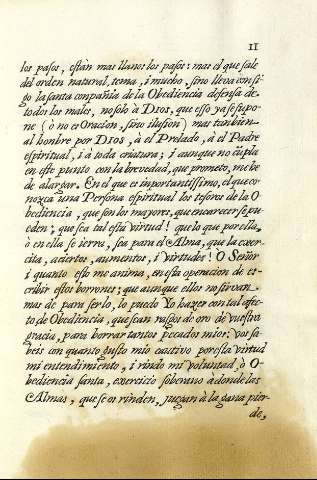 11
los pasos, están mas llanos los pasos: mas el que sale
del orden natural, tema, i mucho, sino lleva consi-
go la santa compañia de la Obediencia defensa de
todos los males, no solo à DIOS, que esso ya se supo-
ne (ò no es Oracion, sino ilusion) mas tambien
al hombre por DIOS, à el Prelado, à el Padre
espiritual, i à toda criatura; i aunque no cũpla
en este punto con la brevedad, que prometo, me he
de alargar. En el que es importantissimo, el que co-
nozca una Persona espiritual los tesoros de la O-
bediencia, que son los mayores, que encarecer se pue-
eden; que sea tal esta virtud! que lo que por ella,
ò en ella se ierra, sea para el Alma, que la exer-
cita, aciertos, aumentos, i virtudes! O Señor
i quanto esto me anima, en esta operacion de es-
cribir estos borrones; que aunque ellos no sirvan
mas de para serlo, lo puedo Yo hazer con tal afec-
to de Obediencia, que sean rasgos de oro de vuestra
gracia, para borrar tantos pecados mios: Vos sa-
beis con quanto gusto mio cautivo por esta virtud
mi entendimiento, i rindo mi voluntad, ò O-
bediencia santa, exercicio soberano à donde las
Almas, que se os rinden, juegan à la gana pier-
de,